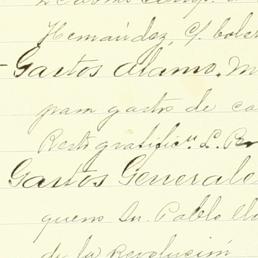 Hernández, c/ bolet
Gastos Alamo. M
pam gastos de ca
Resto gratific.n L. Br
Gastos Generale
queno Dn. Pablo
de la Revolución